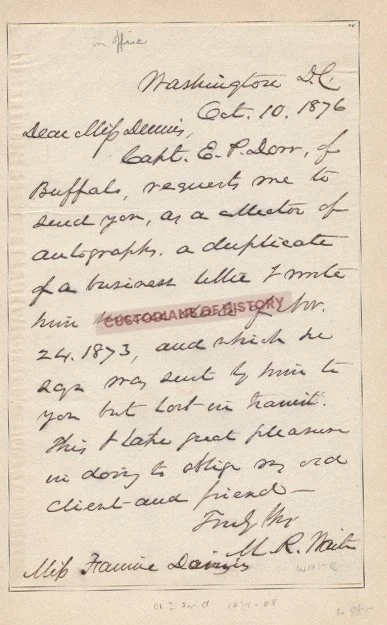 in office
Washington D.C.
Oct. 10. 1876
Dear Miss Dennis,
Capt. E. P. Dorr, of
Buffalo, requests me to
send you, as a collector of
autographs, a duplicate
of a business letter I wrote
him
CUSTODIANS OF HISTORY
Nov.
24. 1873, and which he
says was sent by him to
you but lost in transit.
This I take great pleasure
in doing to oblige my old
client and friend—
Truly Yrs
M. R. Waite
Miss Fannie Dennis
WAITE